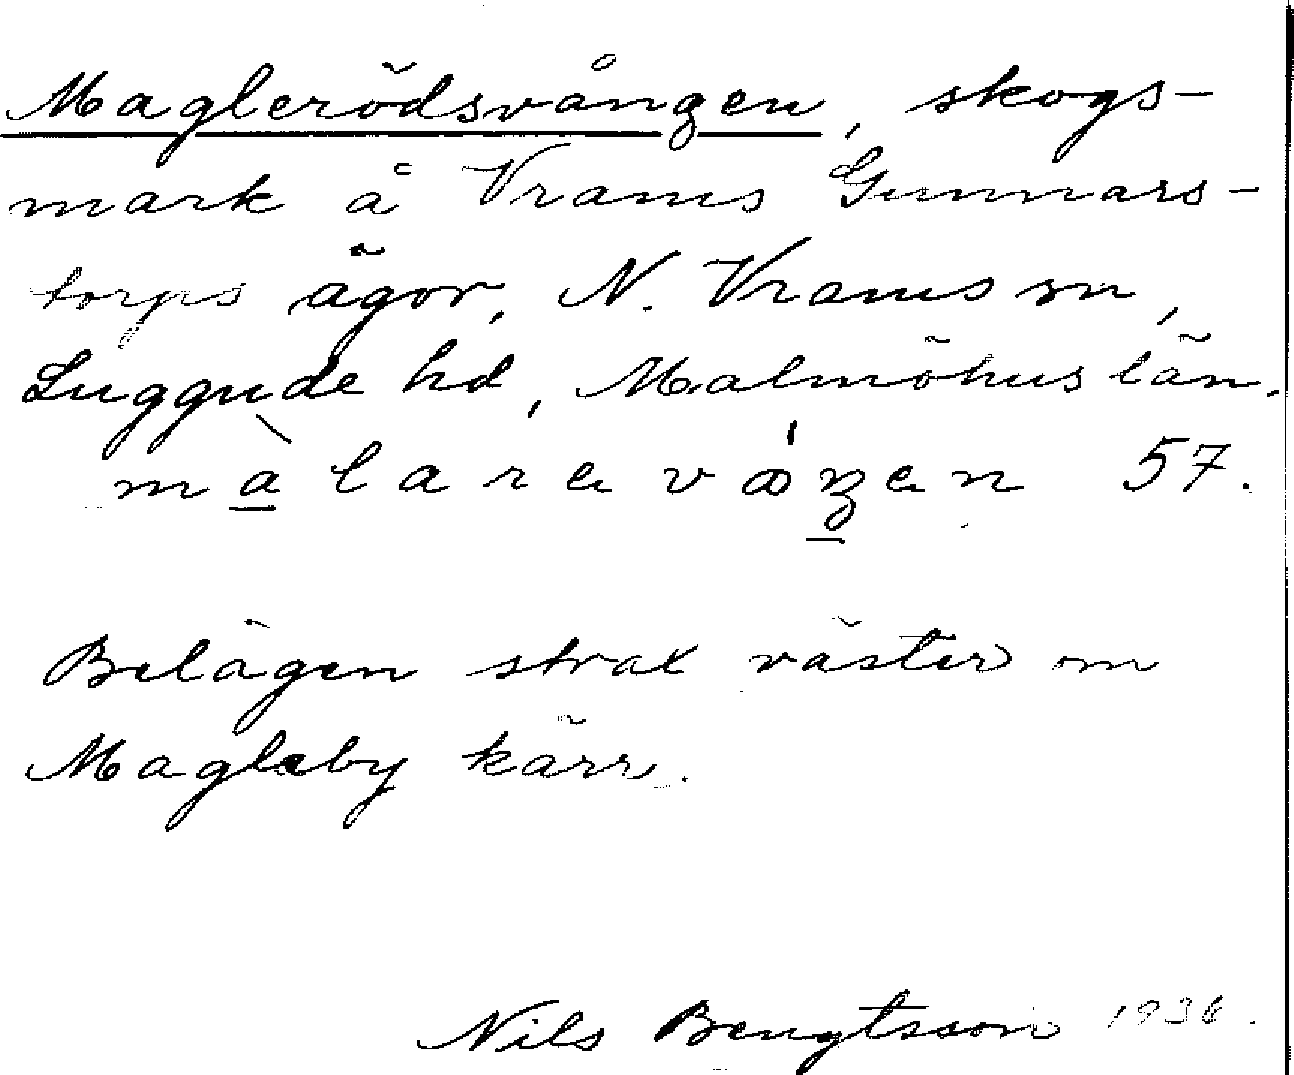 Maglerödsvången, skogs-
mark å Vrams Gunnars-
torps ägor, N. Vrams sn,
Luggude hd, Malmöhus län.
màlarevåꞥen 57.
Belägen strax väster om
Magleby kärr.
Nils Bengtsson 1936.